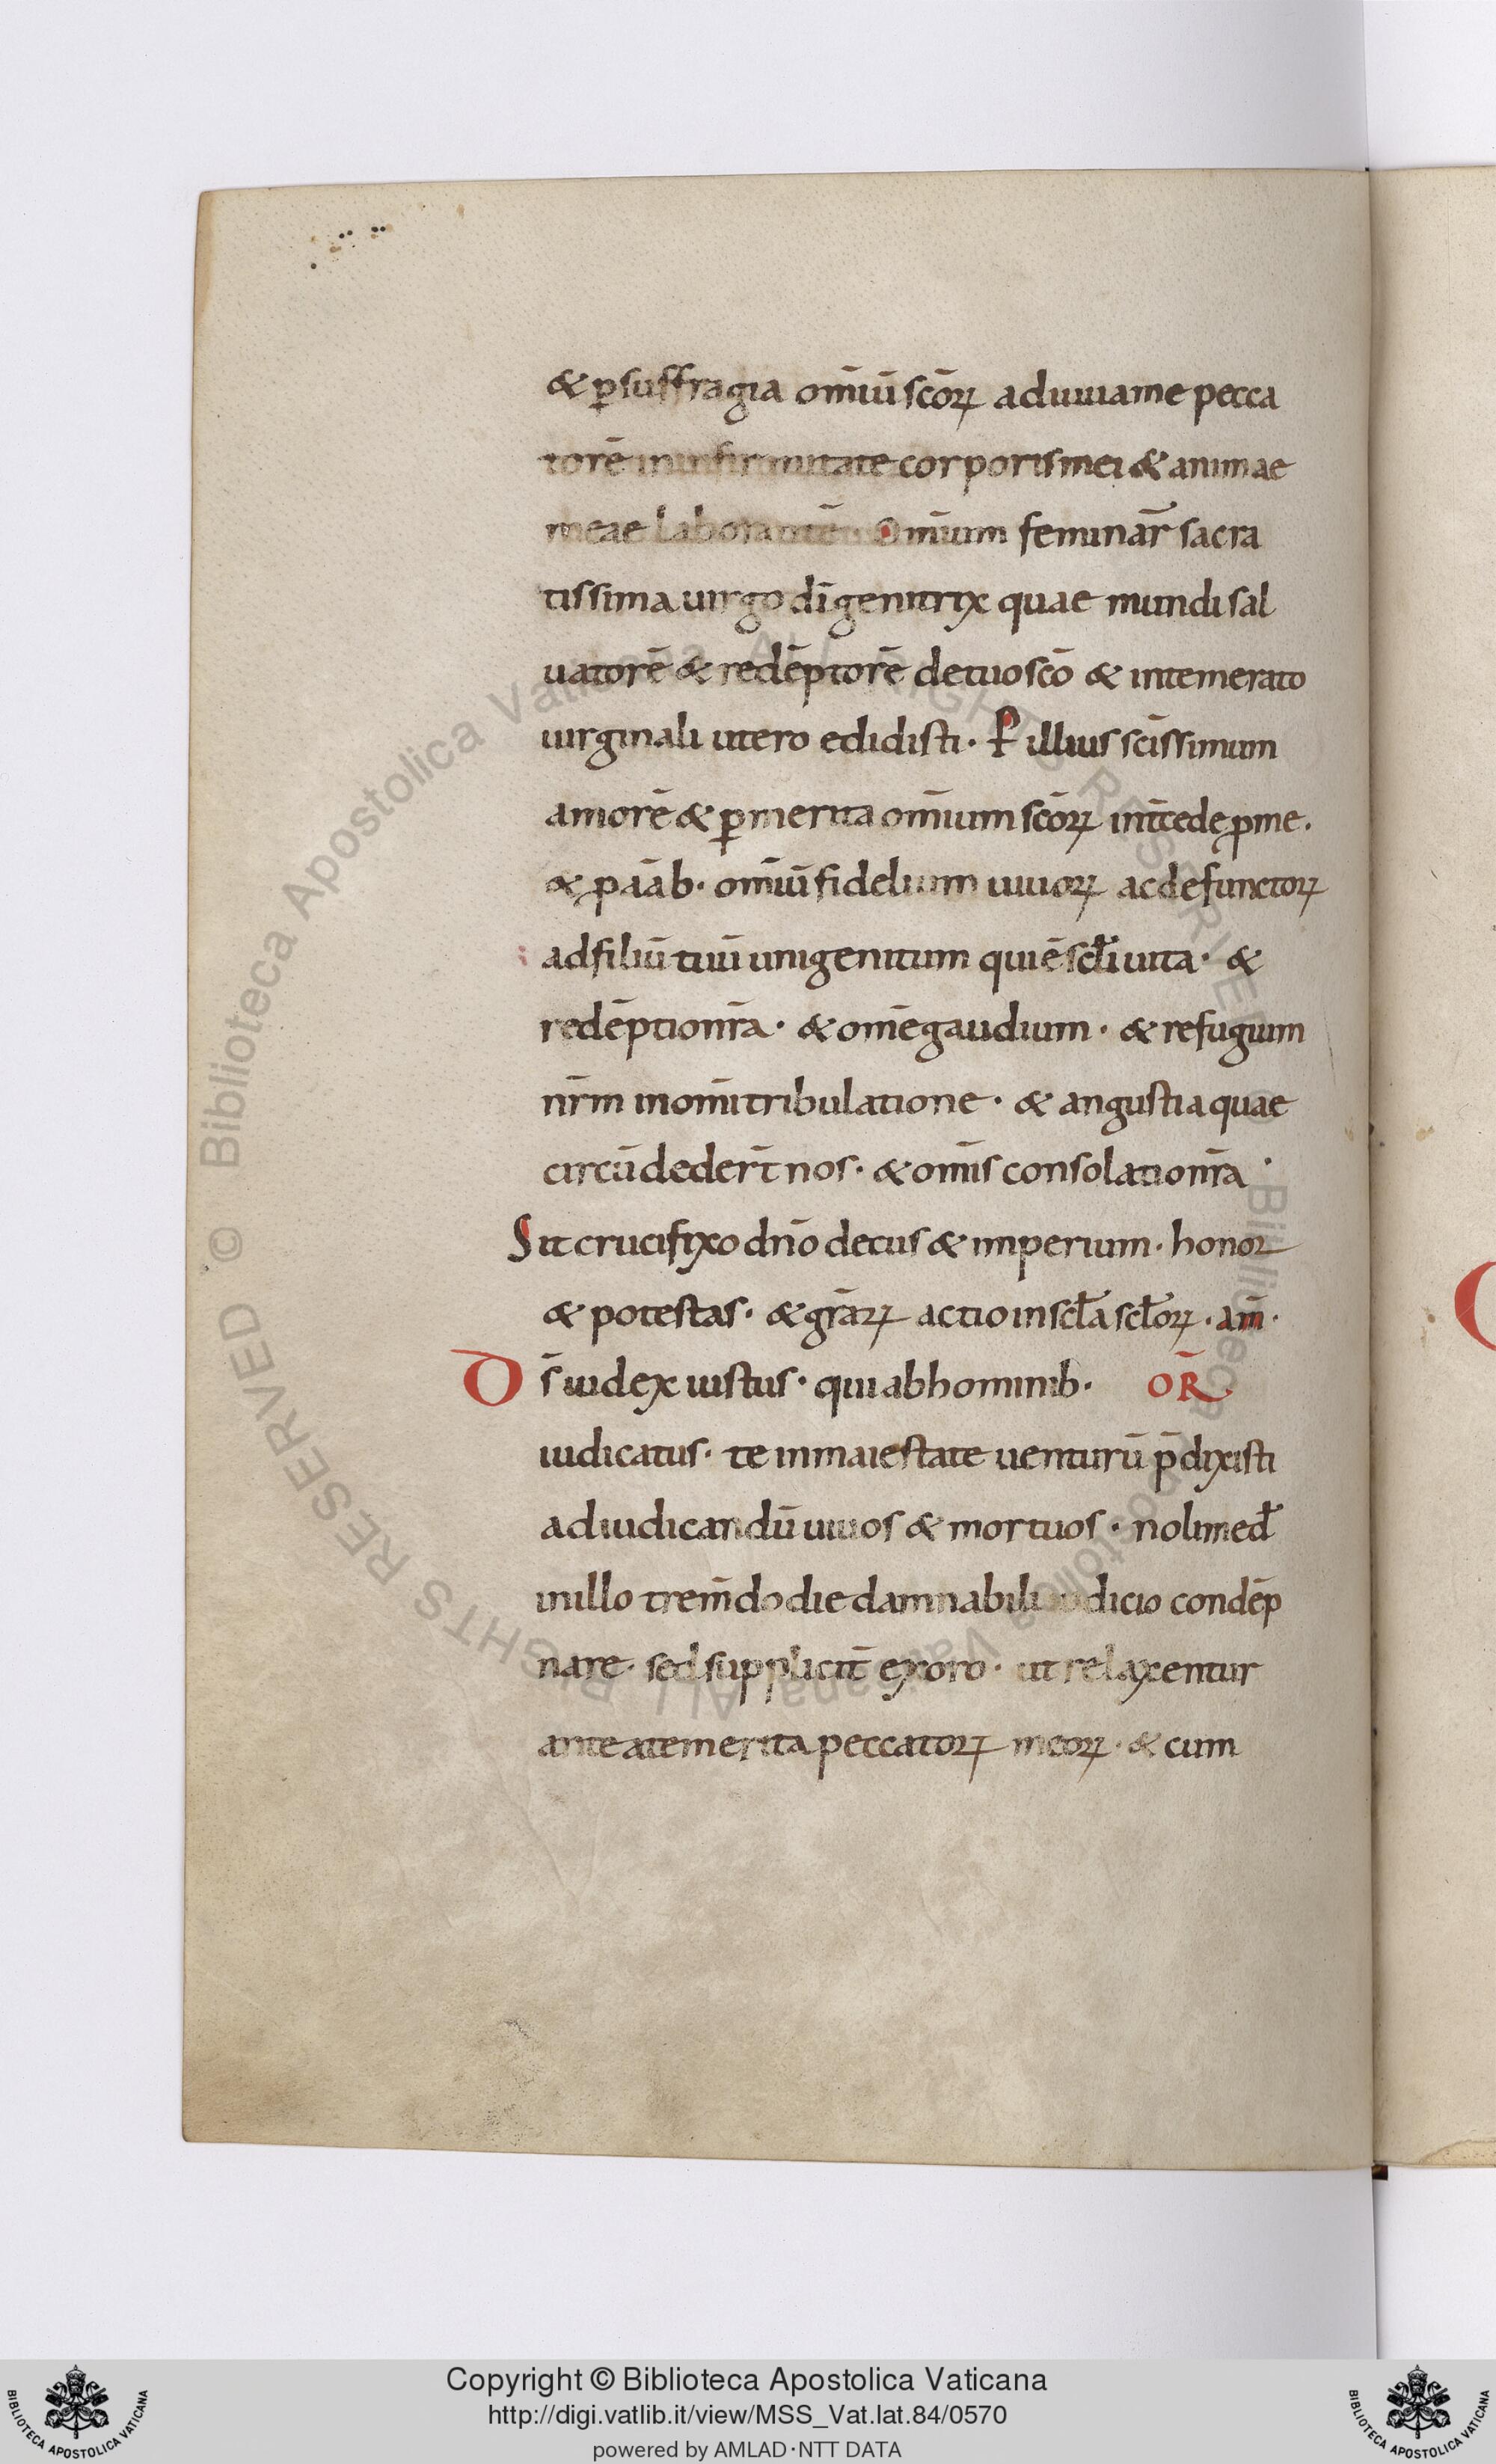 & ꝑ suffragia om̄iū sc̄oꝝ adiuuame pecca
torē ininfirmitate corporismei & animae
meae laborantē. Om̄ium feminar̄ sacra
tissima uirgo dī genitrix quae mundi sal
uatorē & redēptorē detuo sc̄o & intemerato
uirginali utero edidisti · P illius sc̄issimum
amorē & ꝑ merita om̄ium sc̄oꝝ int̄cede ꝓme.
& ꝓ āāb · om̄iū fidelium uiuoꝝ ac defunctoꝝ
ad filiū tuū unigenitum qui ē scłi uita · &
redēptio nr̄a · & om̄e gaudium · & refugium
nr̄m in om̄i tribulatione · & angustia quae
circūdeder̄t nos · & om̄is consolatio nr̄a ·
Sit crucifixo dn̄o decus & imperium · honor
& potestas · & gr̄aꝝ actio in scła scłoꝝ · am̄ ·
Ds̄ iudex iustus · qui ab hominib · OR̄.
iudicatus · te in maiestate uenturū p̄dixisti
ad iudicandū uiuos & mortuos · noli me dł
in illo trem̄do die damnabili iudicio condēp
nare · sed supplicit̄ exoro · ut relaxentur
ante a te merita peccatoꝝ meoꝝ · & cum
© Biblioteca Apostolica Vaticana ALL RIGHTS RESERVED
BIBLIOTECA APOSTOLICA VATICANA
Copyright © Biblioteca Apostolica Vaticana
http://digi.vatlib.it/view/MSS_Vat.lat.84/0570
powered by AMLAD·NTT DATA
BIBLIOTECA APOSTOLICA VATICANA